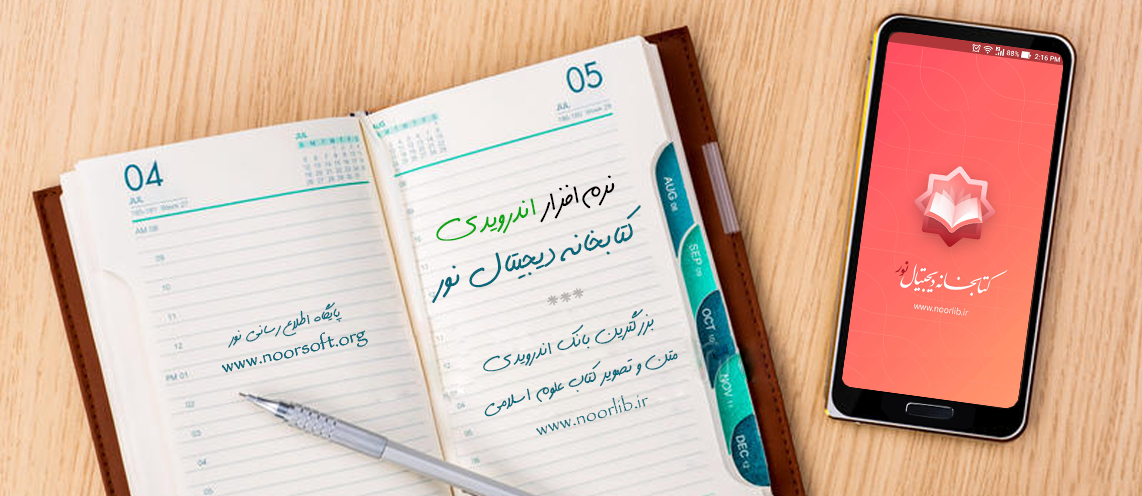 04
JUL
185-181 Week 27
AM 08
09
10
11
12
PM 01
02
03
04
05
پایگاه اطلاع رسانی نور
www.noorsoft.org
JUL
AUG
05
JUL
نرم افزار اندرویدی
کتابخانه دیجیتال نور
***
بزرگترین بانک اندرویدی
متن و تصویر کتاب علوم اسلامی
www.noorlib.ir
AUG 08
SEP 09
OCT 10
NOV 11
DEC 12
88% 2:16 PM
کتابخانه دیجیتال نور
www.noorlib.ir